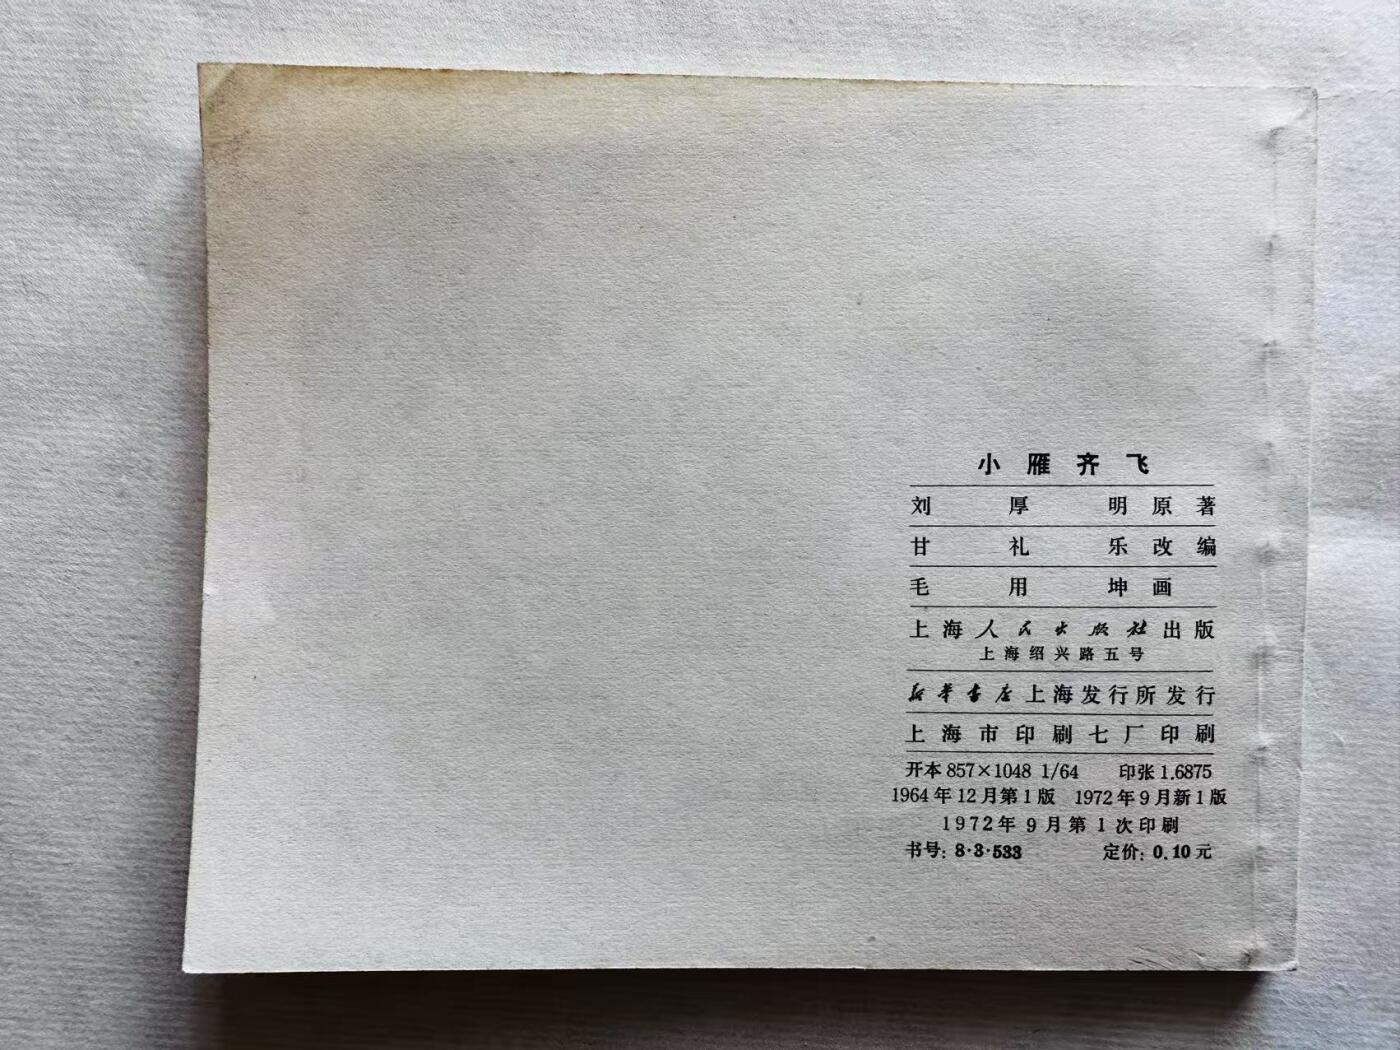 小雁齐飞
刘厚明原著
甘礼乐改编
毛用坤画
上海人民出版社出版
上海绍兴路五号
新华书店上海发行所发行
上海市印刷七厂印刷
开本 857×1048 1/64 印张 1.6875
1964年12月第1版 1972年9月新1版
1972年9月第1次印刷
书号: 8·3·533 定价: 0.10元